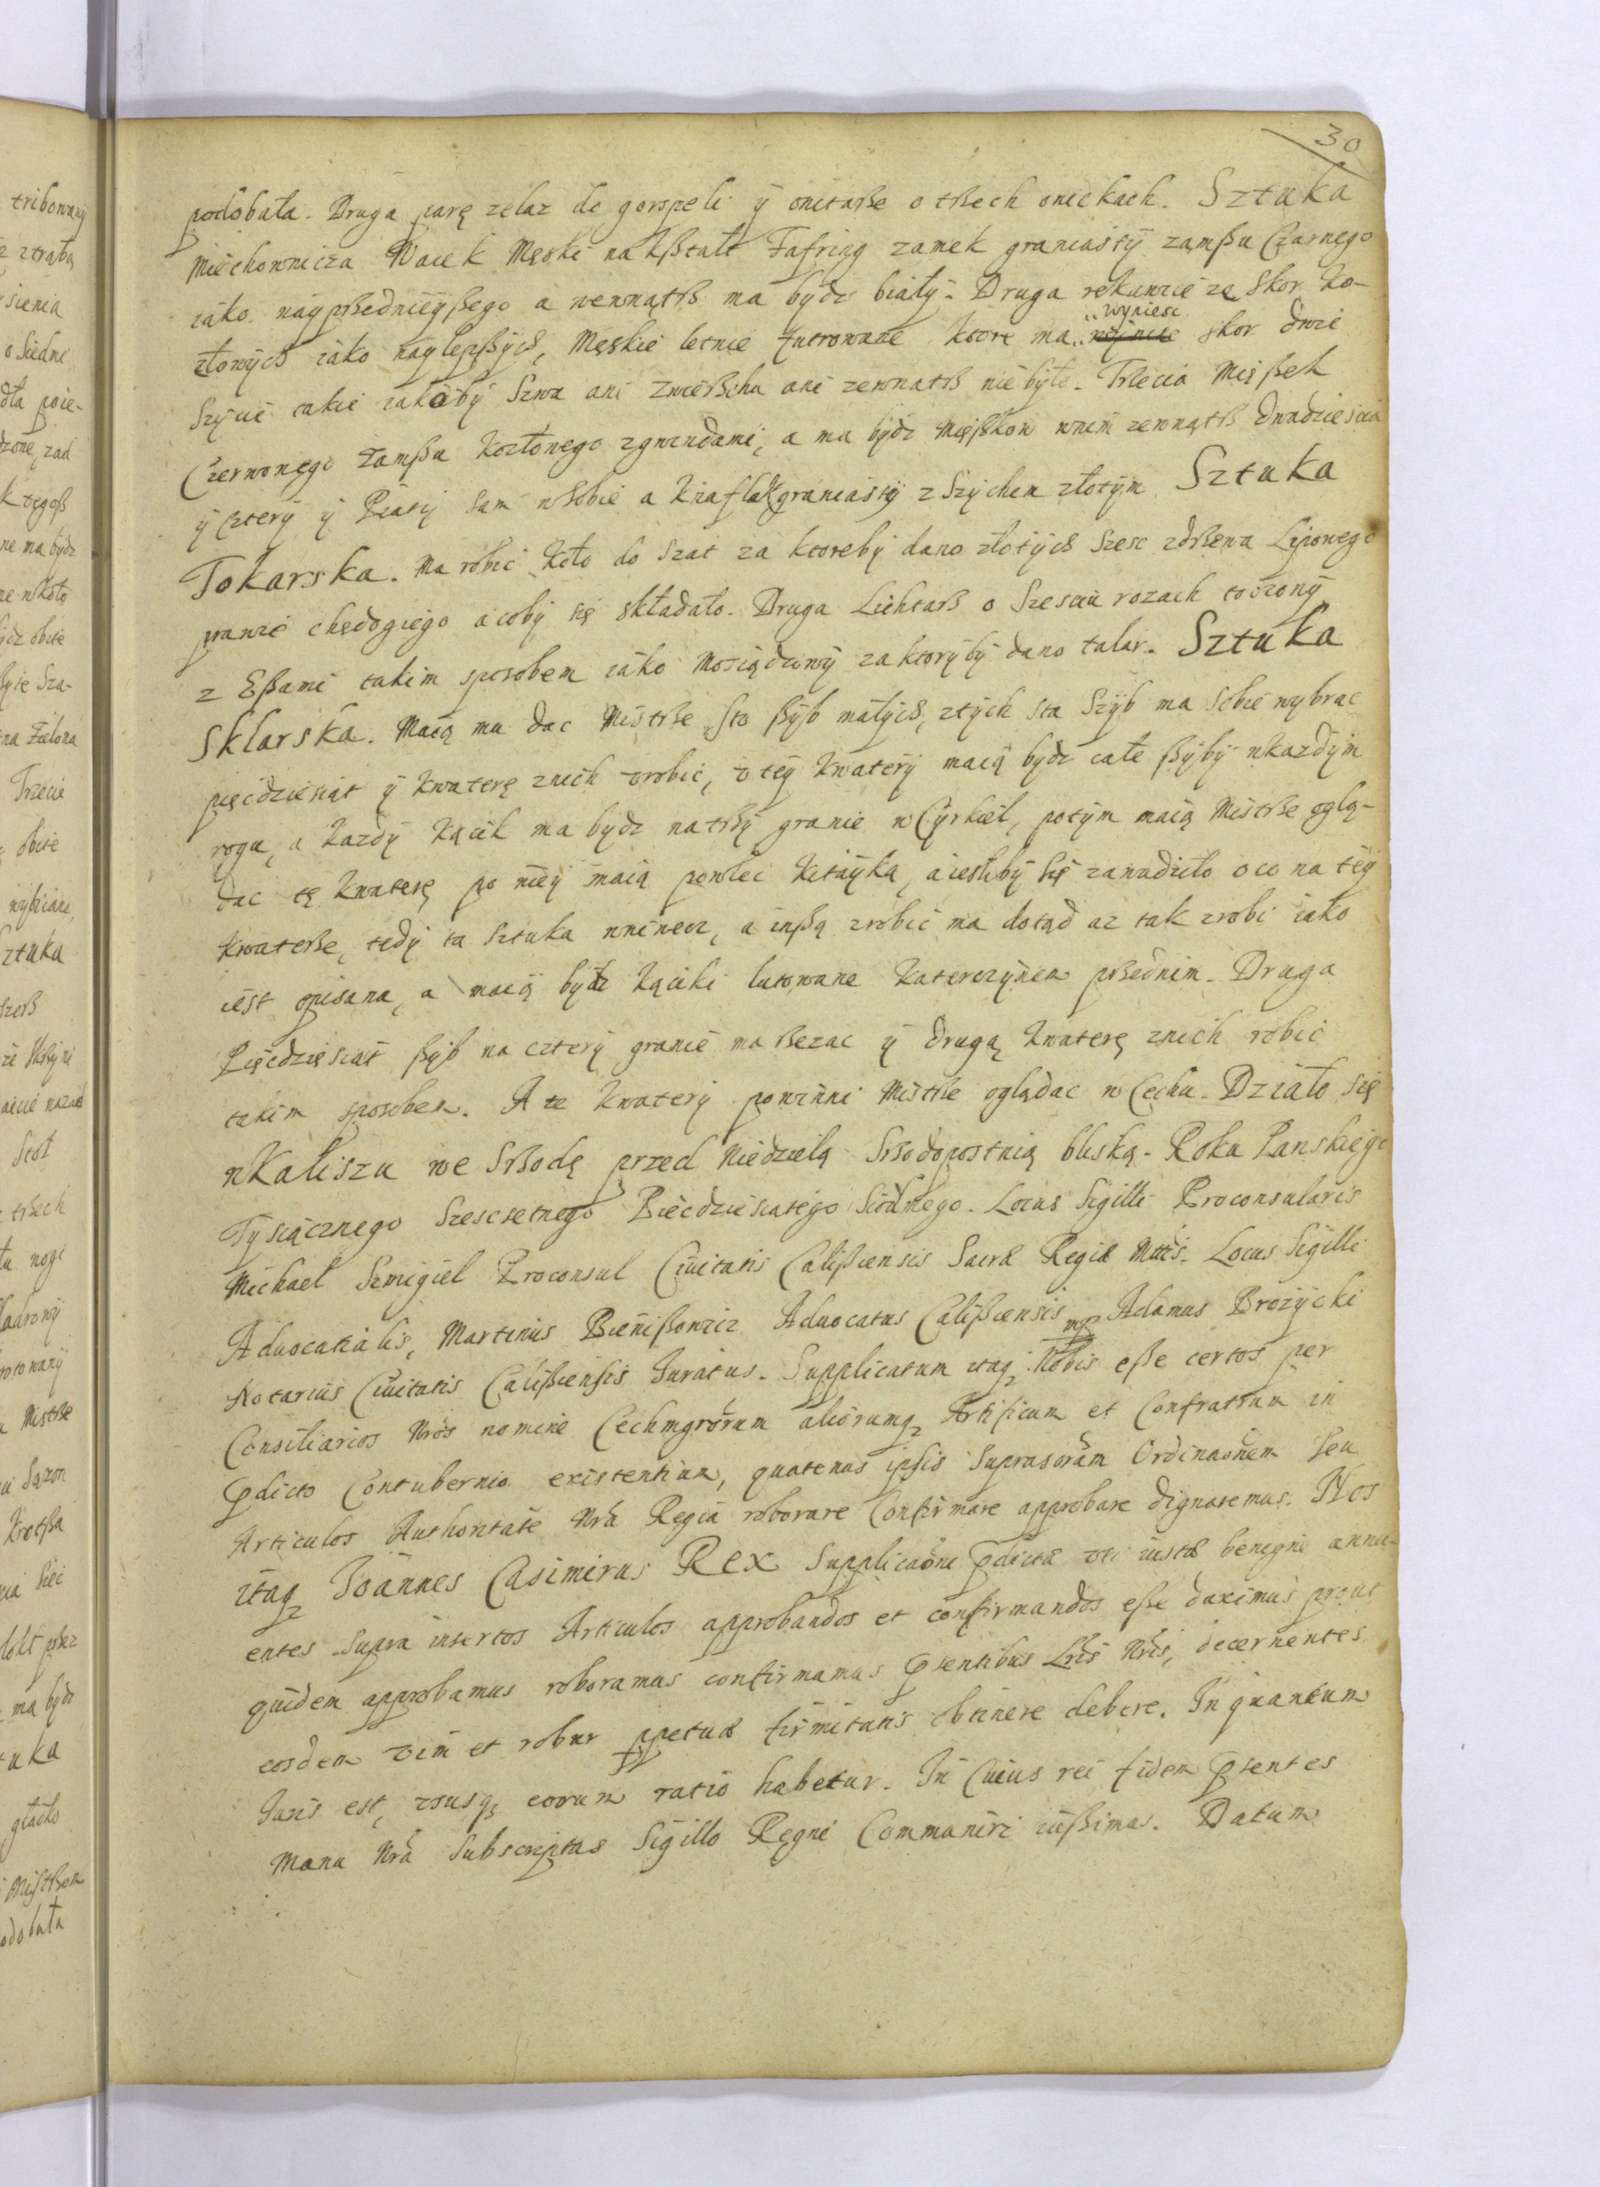 30
podobała. Druga parę zelaz do gospeli ÿ onitarße o trßech onickach. Sztuka
Miechownicza Wacek Męski na kßtałt Fafryng zamek graniastÿ zamßu Czarnego
iáko náyprßednieyßego a wewnątrß ma bÿdz białÿ. Druga rękawice ze skor Ko-
złowÿch iáko náylepßÿch, Męskie letnie futrowane ktore ma wyniesc skor dwie
Szÿcie takie iakobÿ Szwa ani zwierßchu ani zewnątrß niebÿło. Trzecia Mießek
Czerwonego zamßu kozłowego zgwindami, a ma bÿdz Mießkow wnim zewnątrß dwadziescia
ÿ czterÿ ÿ Piatÿ sam wsobie a Knaflik graniastÿ z Szÿchem złotÿm Sztuka
Tokarska. Ma robic Koło do Szat za ktorebÿ dano złotÿch szesc zdrßewa Lipowego
prawie chędogiego acobÿ się składało. Druga Lichtarß o Szesciu rozach toczonÿ
z Eßami takim sposobem iáko Mosiądzowÿ za ktorÿbÿ dano talar. Sztuka
Sklarska. Maią mu dac Mistrße sto ßÿb małÿch, ztÿch sta Szÿb ma sobie wybrac
pięcdziesiąt ÿ kwaterę znich vrobic, v teÿ kwaterÿ maią bÿdz całe ßÿbÿ wkazdÿm
rogu, a kazdÿ kącik ma bÿdz na trßÿ granie w Cÿrkiel, potÿm maią Mistrße oglą-
dac tę kwaterę po nieÿ maią powlec kitaÿką, aiesłibÿ się zawadziło oco na teÿ
kwaterße, tedÿ ta sztuka wniwecz, a inßą zrobic ma dotąd az tak zrobi iako
iest opisana, a maią bÿdz kąciki lutowane katerczÿnem prßednim. Druga
Pięcdziesiat ßÿb na czterÿ granie ma ßezac ÿ drugą kwaterę znich robic
takim sposobem. A te kwaterÿ powinni Mistrße oglądac w Cechu. Działo się
wKaliszu we Srßodę przed Niedzielą Srßodopostnią bliską. Roku Panskiego
Tysiącznego Szescsetnego Piecdziesiatego Siodmego. Locus Sigilli Proconsularis
Michael Szmigiel Proconsul Civitatis Calißiensis Sacræ Regiæ Mttis. Locus Sigilli
Advocatialis, Martinus Bienißowicz Advocatus Calißiensis mp Adamus Brozÿcki
Notarius Civitatis Calißiensis Juratus. Supplicatum itaq; Nobis eße certos per
Consiliarios Nros nomine Cechmgrorum aliorumq; Artificum et Confratrum in
pdicto Contubernio existentium, quatenus ipsis Suprasoram Ordinaonem seu
Articulos Authoritate Nra Regia roborare Confirmare approbare dignaremur. Nos
itaq; Joannes Casimirus Rex Supplicaoni pdictæ vti iustæ benigne annu-
entes supra insertos Articulos approbandos et confirmandos eße duximus prout
quidem approbamus roboramus confirmamus psentibus Lris Nris, decernentes
eosdem vim et robur ppetuæ firmitatis obtinere debere. In quantum
Juris est, vsusq; eorum ratio habetur. In Cuius rei fidem psentes
Manu Nra Subscriptas Sigillo Regni Communiri iußimus. Datum